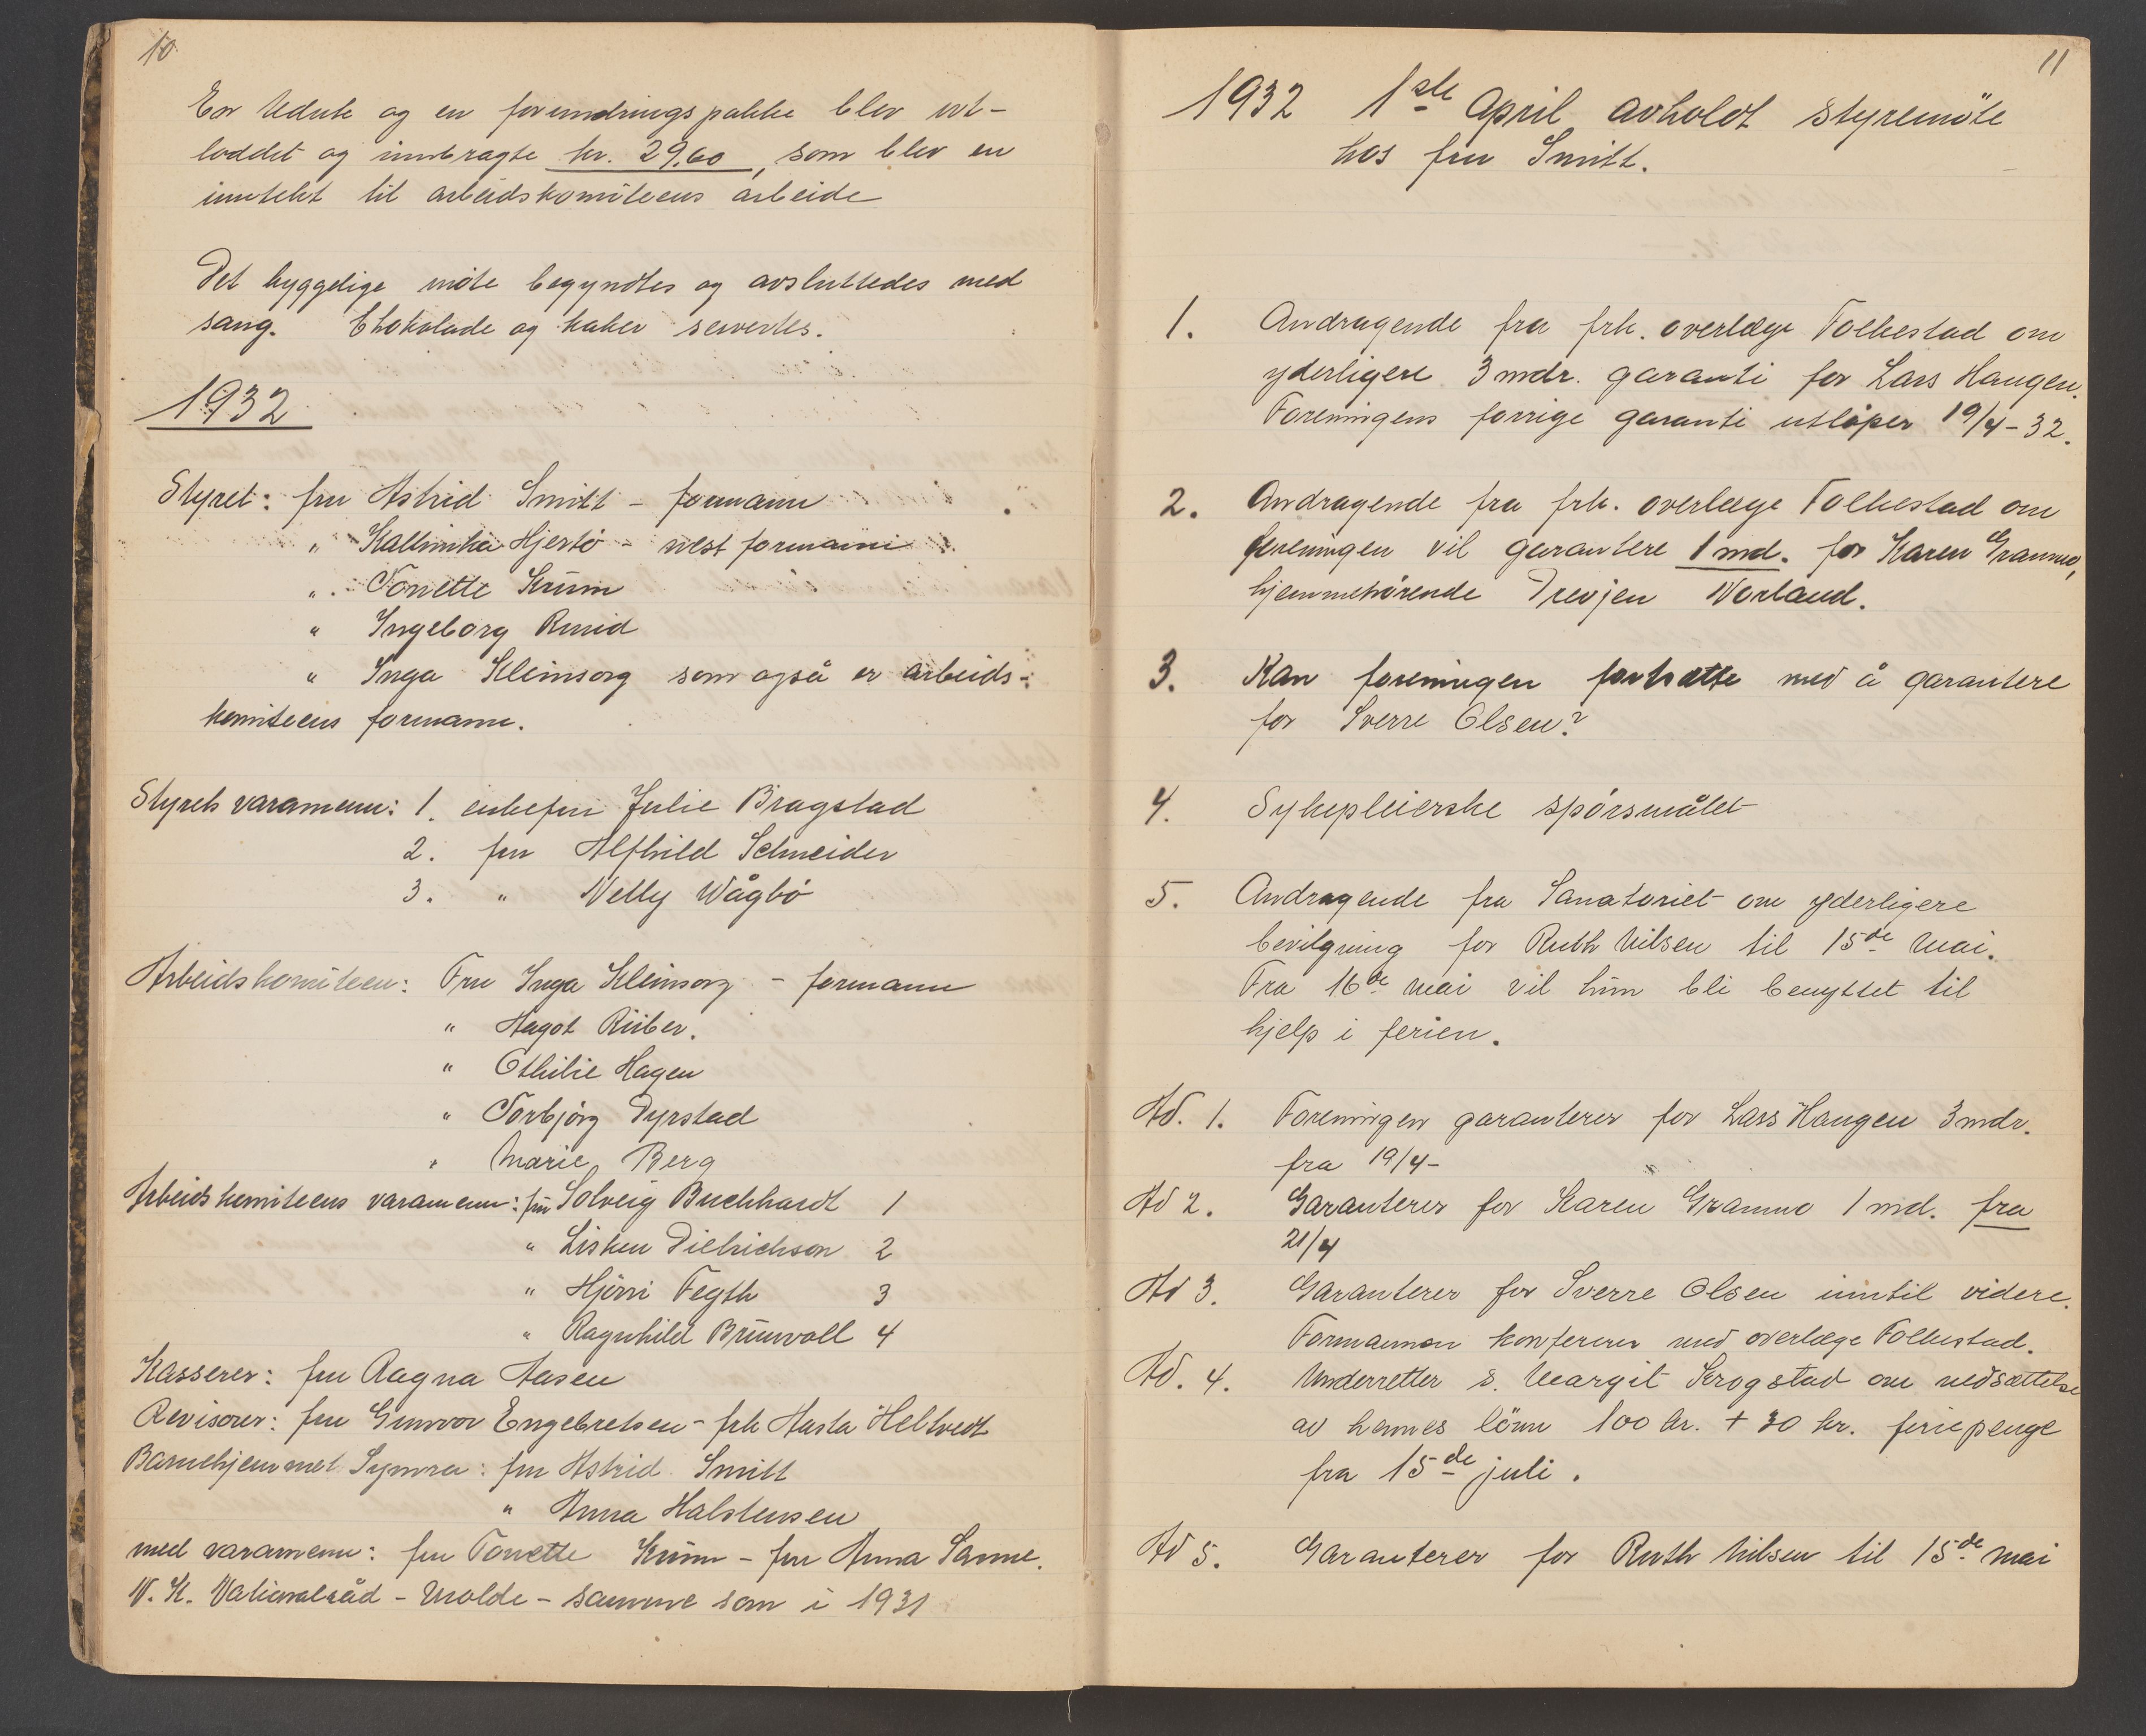 10
En  og en forundringspakke blev ut-
loddet og innbragte kr. 29.60, som blev en
inntekt til arbeidskomiteens arbeide
Det hyggelige möte begyndtes og avsluttedes med
sang. Chokolade og kaker servertes.
1932
Styret: fru Astrid Smitt - formann
" Kathinka Hjertö - nestformann
" Tonette Krum
" Ingeborg Ruud
" Inga Kleinsorg som også er arbeids-
komiteens formann.
Styrets varamenn: 1. enkefru Julie Bragstad
2. fru Alfhild Schneider
3. " Nelly Vågbö
Arbeidskomiteen: Fru Inga Kleinsorg - formann
" Hagot Rüber.
" Othilie Hagen
" Torbjörg Dyrstad
" Marie Berg
Arbeidskomiteens varamenn: fru Solveig Buchhardt 1
" Lisken Dietrichson 2
" Hjöri Fegth 3
" Ragnhild Brunvoll 4
Kasserer: fru Ragna Aasen
Revisorer: fru Gunvor Engebretsen - frk Hasta Heltvedt
Barnehjemmet Symra: fru Astrid Smitt
" Anna Halstensen
med varamenn: fru Tonette Krum - fru Anna Sanne.
N. K. Nationalråd - Molde - samme som i 1931
11
1932 1ste April avholdt styremöte
hos fru Smitt.
1. Andragende fra frk. overlæge Folkestad om
yderligere 3 mdr. garanti for Lars Haugen.
Foreningens forrige garanti utlöper 19/4-32.
2. Andragende fra frk. overlæge Folkestad om
foreningen vil garantere 1 md. for Karen Granmo,
hjemmehörende Drevjen Norland.
3. Kan foreningen fortsætte med å garantere
for Sverre Olsen?
4. Sykepleierske spörsmålet
5. Andragende fra Sanatoriet om yderligere
bevilgning for Ruth Nilsen til 15de mai.
Fra 16de mai vil hun bli benyttet til
hjelp i ferien.
Ad. 1. Foreningen garanterer for Lars Haugen 3 mdr.
fra 19/4-
Ad 2. Garanterer for Karen Granmo 1 md. fra
21/4
Ad 3. Garanterer for Sverre Olsen inntil videre.
Formannen konfererer med overlæge Folkestad.
Ad. 4. Underretter s. Margit Krogstad om nedsættelse
av hennes lönn 100 kr. + 30 kr. feriepenge
fra 15de juli.
Ad 5. Garanterer for Ruth Nilsen til 15de mai